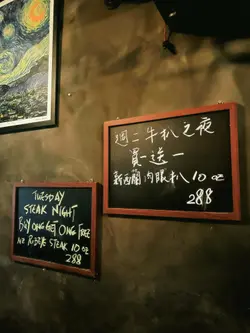 週二牛扒之夜
買一送一
新西蘭肉眼扒 10 oz
288
TUESDAY
STEAK NIGHT
BUY ONG GET ONG FREE
NZ RIBEYE STEAK 10 oz
288